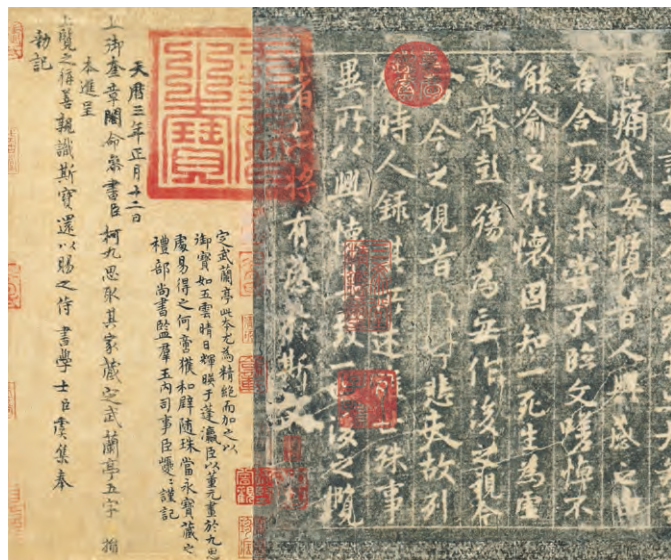 不痛哉每攬昔人興感之由
若合一契未嘗不臨文嗟悼不
能喻之於懷固知一死生為虛
誕齊彭殤為妄作後之視今
今之視昔 悲夫故列
時人錄其所述 世殊事
異所以興懷其致一也後之攬
者亦將有感於斯文
定武蘭亭此本尤為精絕而加之以
御寶如五雲晴日輝暎于蓬瀛臣以董元畫於九思
處易得之何啻獲和璧隨珠當永寶藏之
禮部尚書監羣玉內司事臣巙〻謹記
天曆三年正月十二日
上御奎章閣命參書臣柯九思取其家藏定武蘭亭五字損
本進呈
上覽之稱善親識斯寶還以賜之侍書學士臣虞集奉
勑記